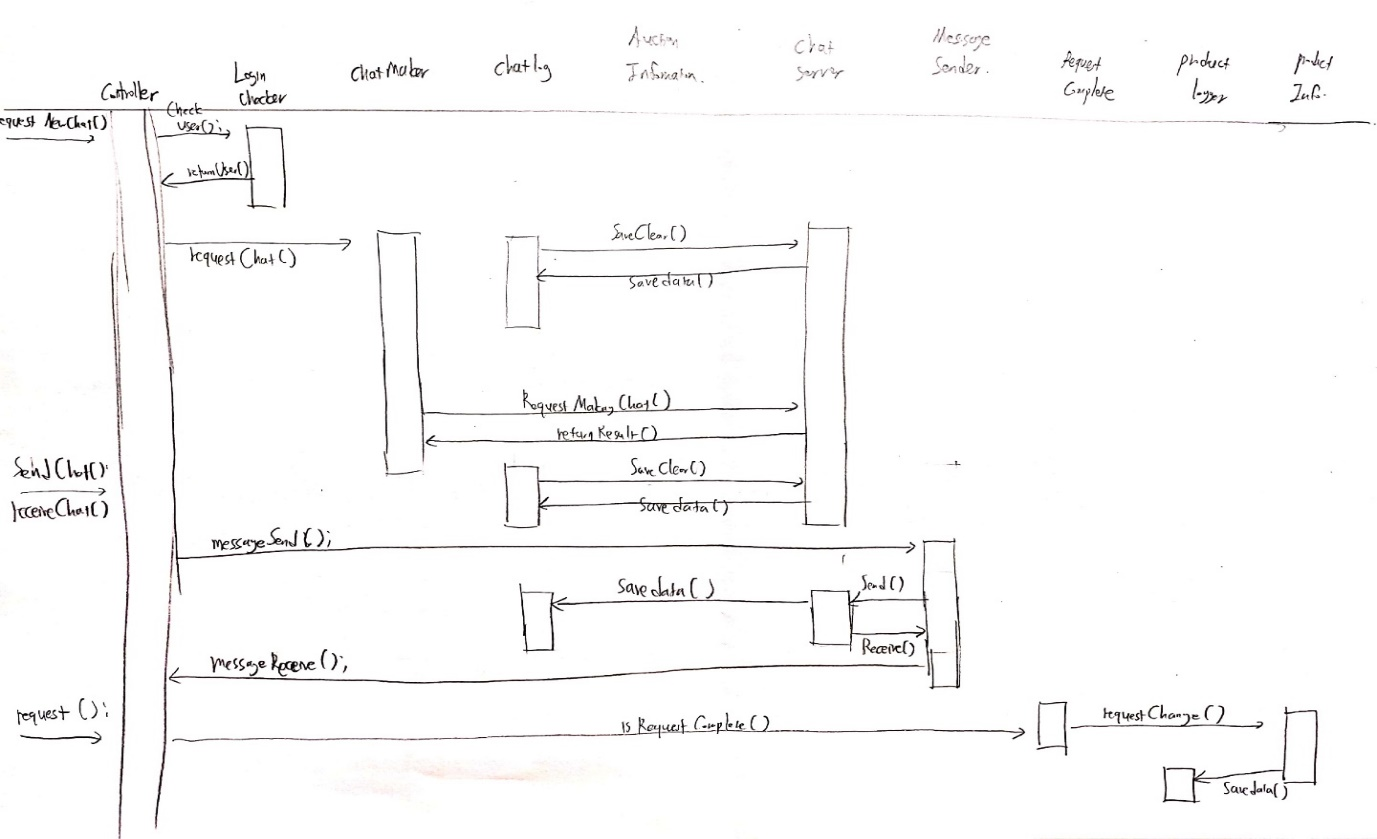 Controller
Login
Checker
ChatMaker
Chatlog
Auction
Information.
Chat
server
Message
Sender.
request
Complete
product
logger
product
Info.
request NewChat()
Check
user();
returnUser()
requestChat()
SaveClear()
Savedata()
Request Making Chat()
returnResult()
SendChat();
receiveChat()
SaveClear()
Savedata()
messageSend();
Savedata()
Send()
Receive()
messageReceive();
request();
is Request Complete()
requestChange()
Savedata()